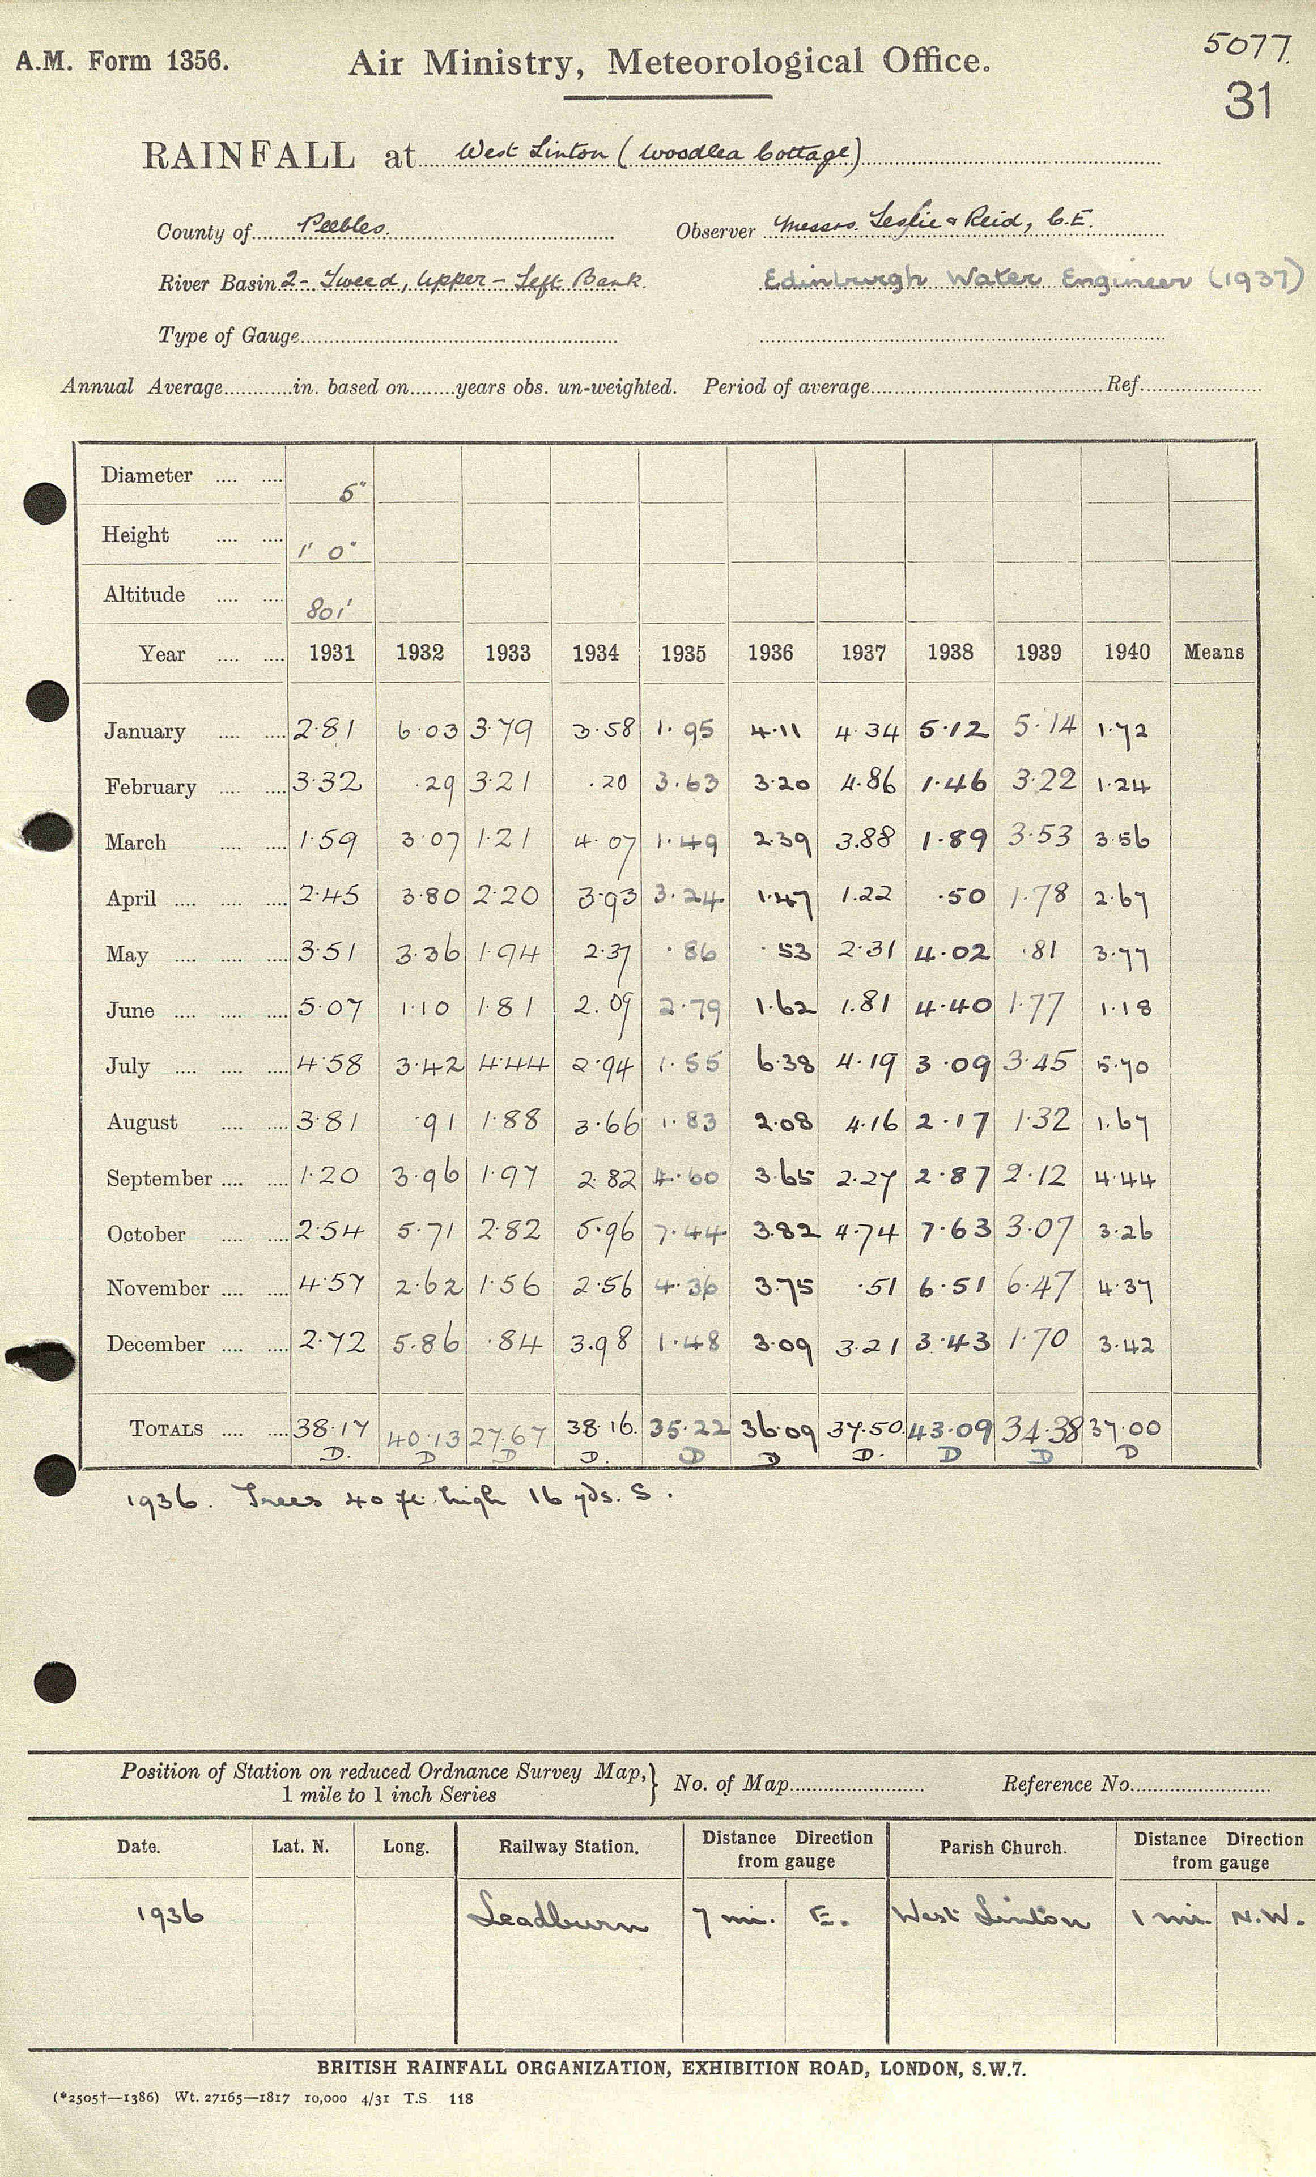 A.M. Form 1356.
Air Ministry, Meteorological Office.
5077.
31
RAINFALL at West Linton (Woodlea Cottage)
County of Peebles. Observer Messrs. Leslie & Reid, C.E.
River Basin 2 - Tweed, Upper - Left Bank Edinburgh Water Engineer (1937)
Type of Gauge
Annual Average in. based on years obs. un-weighted. Period of average Ref
Diameter 5"
Height 1' 0"
Altitude 801'
Year 1931 1932 1933 1934 1935 1936 1937 1938 1939 1940 Means
January 2.81 6.03 3.79 3.58 1.95 4.11 4.34 5.12 5.14 1.72
February 3.32 .29 3.21 .20 3.63 3.20 4.86 1.46 3.22 1.24
March 1.59 3.07 1.21 4.07 1.49 2.39 3.88 1.89 3.53 3.56
April 2.45 3.80 2.20 3.93 3.24 1.47 1.22 .50 1.78 2.67
May 3.51 3.36 1.94 2.37 .86 .53 2.31 4.02 .81 3.77
June 5.07 1.10 1.81 2.09 2.79 1.62 1.81 4.40 1.77 1.18
July 4.58 3.42 4.44 2.94 1.55 6.38 4.19 3.09 3.45 5.70
August 3.81 .91 1.88 3.66 1.83 2.08 4.16 2.17 1.32 1.67
September 1.20 3.96 1.97 2.82 4.60 3.65 2.27 2.87 2.12 4.44
October 2.54 5.71 2.82 5.96 7.44 3.82 4.74 7.63 3.07 3.26
November 4.57 2.62 1.56 2.56 4.36 3.75 .51 6.51 6.47 4.37
December 2.72 5.86 .84 3.98 1.48 3.09 3.21 3.43 1.70 3.42
TOTALS 38.17 40.13 27.67 38.16. 35.22 36.09 37.50. 43.09 34.38 37.00
D. D D D. D D D. D D D
1936. Trees 40 ft. high 16 yds. S.
Position of Station on reduced Ordnance Survey Map, } No. of Map Reference No.
1 mile to 1 inch Series
Date. Lat. N. Long. Railway Station. Distance Direction from gauge Parish Church. Distance Direction from gauge
1936 Leadburn 7 mi. E. West Linton 1 mi. N.W.
BRITISH RAINFALL ORGANIZATION, EXHIBITION ROAD, LONDON, S.W.7.
(*2505†—1386) Wt. 27165—1817 10,000 4/31 T.S. 118